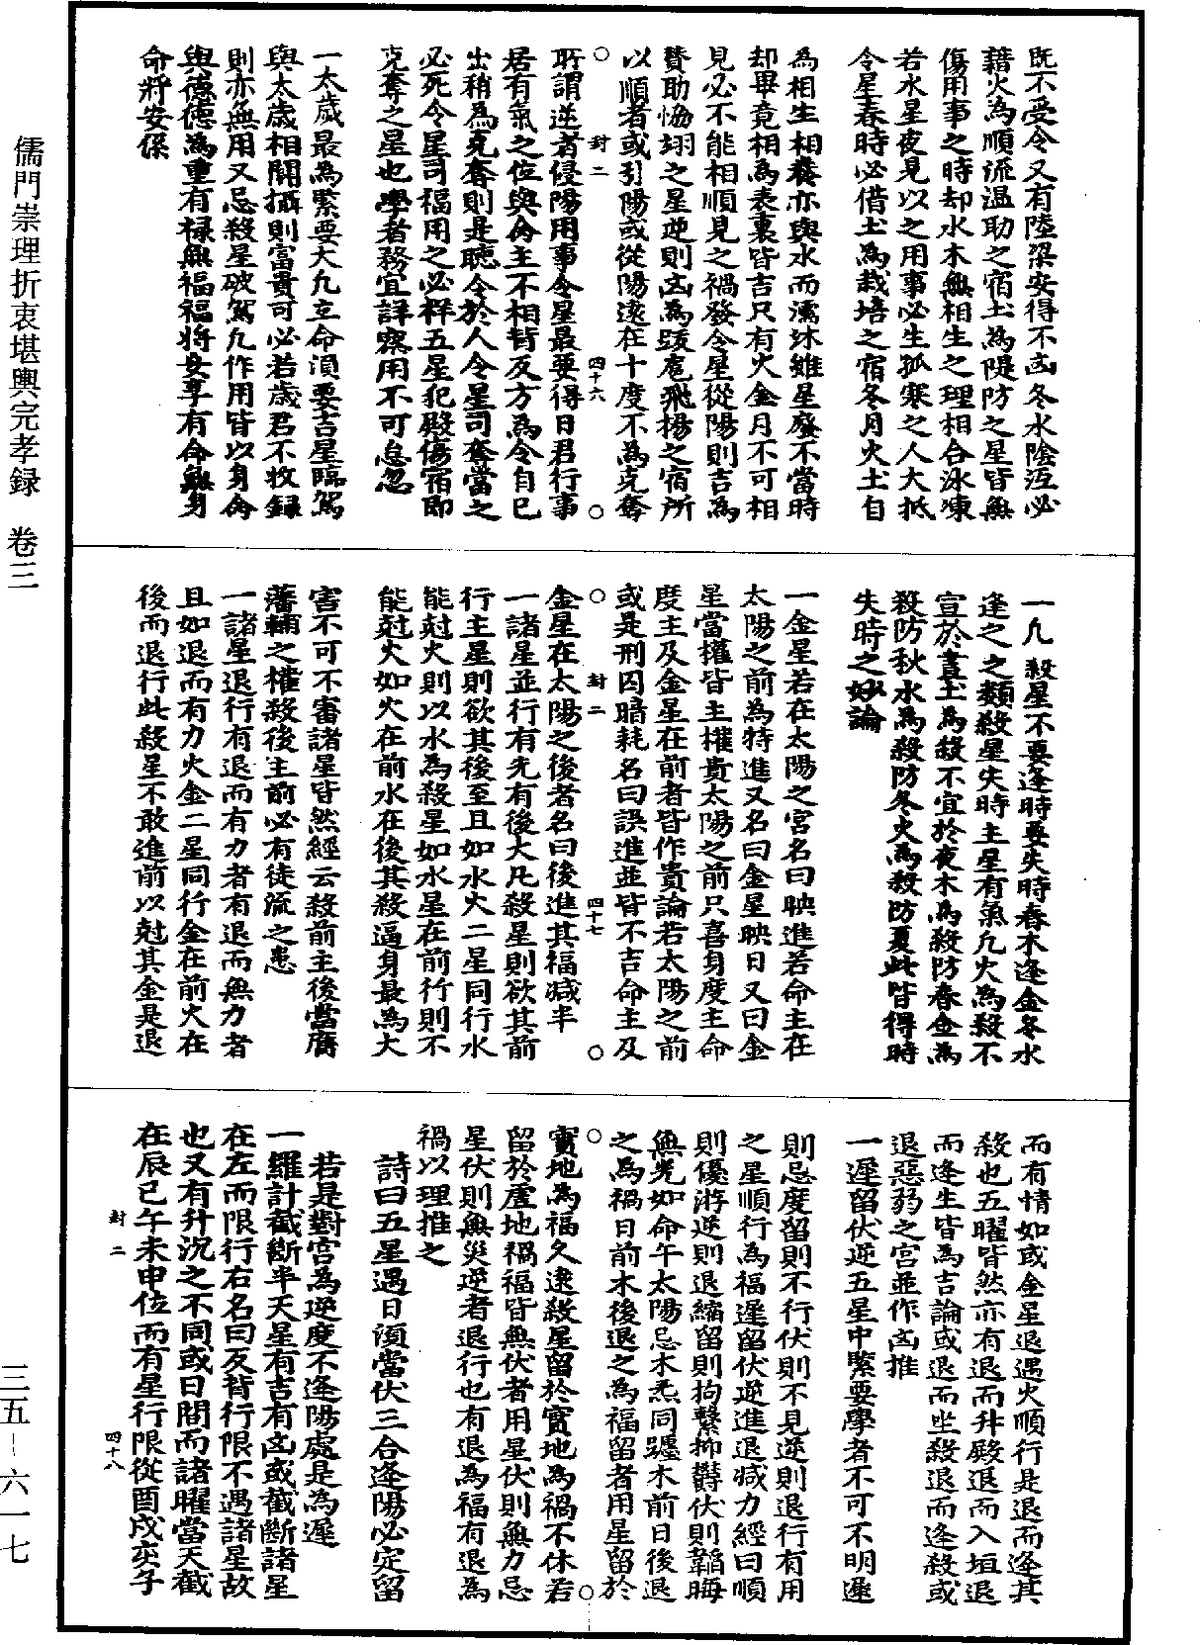 儒門崇理折衷堪輿完孝録　卷三
既不受令又有陸梁安得不凶冬水陰沍必
藉火為順流温助之宿土為隄防之星皆無
傷用事之時却水木無相生之理相合氷凍
若水星夜見以之用事必生孤寒之人大抵
令星春時必借土為栽培之宿冬月火土自
為相生相養亦與水而濡沐雖星廢不當時
却畢竟相為表裏皆吉只有火金月不可相
見必不能相順見之禍發令星從陽則吉為
賛助恊翊之星逆則凶為跋扈飛揚之宿所
以順者或引陽或從陽遠在十度不為克奪
封二
四十六
所謂逆者侵陽用事令星最要得日君行事
居有氣之位與命主不相背反方為令自已
出稍為克奪則是聽令於人令星司奪當之
必死令星司福用之必祥五星犯殿傷宿即
克奪之星也學者務宜詳察用不可怠忽
一太歲最為緊要大凡立命湏要吉星臨駕
與太歲相關攝則富貴可必若歲君不收録
則亦無用又忌殺星破駕凡作用皆以身命
與德德為重有禄無福福將安享有命無身
命將安保
一凡殺星不要逢時要失時春木逢金冬水
逢之之類殺星失時主星有氣凡火為殺不
宜於晝土為殺不宜於夜木為殺防春金為
殺防秋水為殺防冬火為殺防夏此皆得時
失時之妙論
一金星若在太陽之宮名曰映進若命主在
太陽之前為特進又名曰金星映日又曰金
星當權皆主權貴太陽之前只喜身度主命
度主及金星在前者皆作貴論若太陽之前
或是刑囚暗耗名曰誤進並皆不吉命主及
封二
四十七
金星在太陽之後者名曰後進其福减半
一諸星並行有先有後大凡殺星則欲其前
行主星則欲其後至且如水火二星同行水
能尅火則以水為殺星如水星在前行則不
能尅火如火在前水在後其殺逼身最為大
害不可不審諸星皆然經云殺前主後當膺
藩輔之權殺後主前必有徒流之患
一諸星退行有退而有力者有退而無力者
且如退而有力火金二星同行金在前火在
後而退行此殺星不敢進前以尅其金是退
而有情如或金星退遇火順行是退而逢其
殺也五曜皆然亦有退而升殿退而入垣退
而逢生皆為吉論或退而坐殺退而逢殺或
退惡弱之宮並作凶推
一遲留伏逆五星中緊要學者不可不明遲
則忌度留則不行伏則不見逆則退行有用
之星順行為福遲留伏逆進退减力經曰順
則優游逆則退縮留則拘繫抑欝伏則韜晦
無光如命午太陽忌木炁同躔木前日後退
之為禍日前木後退之為福留者用星留於
實地為福久遠殺星留於實地為禍不休若
留於虗地禍福皆無伏者用星伏則無力忌
星伏則無災逆者退行也有退為福有退為
禍以理推之
詩曰五星遇日湏當伏三合逢陽必定留
若是對宮為逆度不逢陽處是為遲
一羅計截斷半天星有吉有凶或截斷諸星
在左而限行右名曰反背行限不遇諸星故
也又有升沉之不同或日間而諸曜當天截
在辰巳午未申位而有星行限從酉戍亥子
封二
四十八
三五—六一七